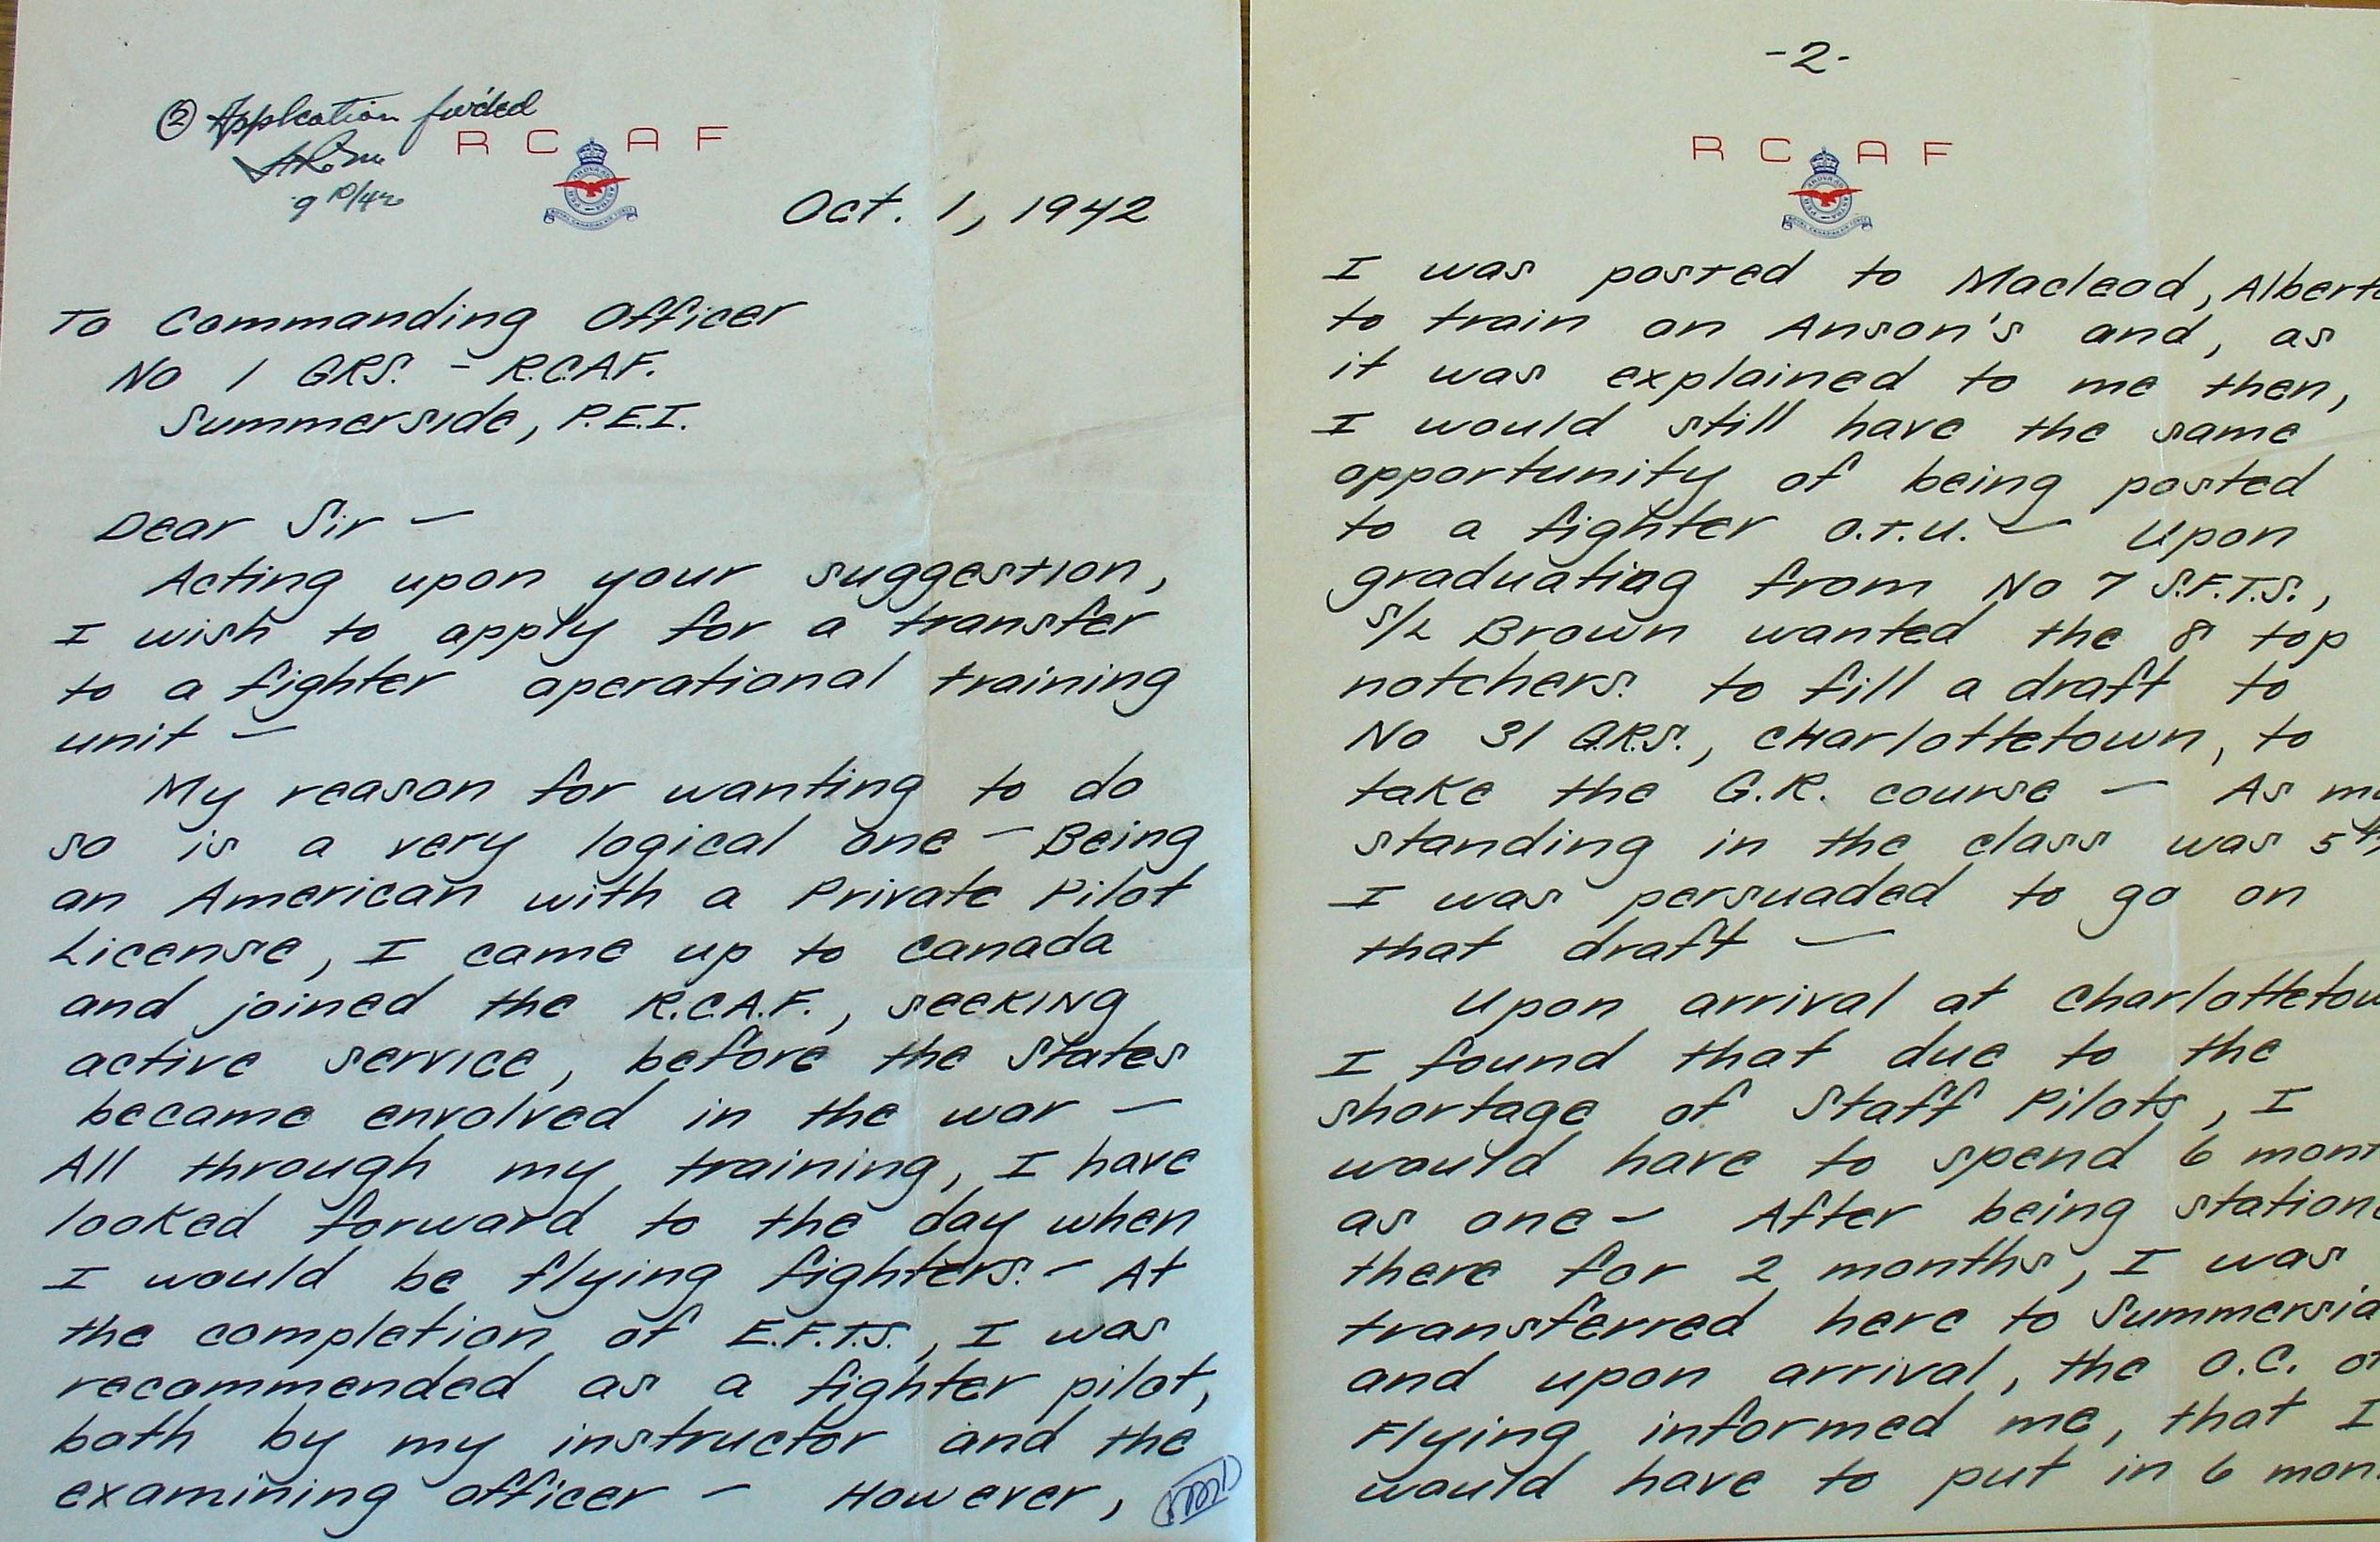 ② Application fwded
9 10/42
R C A F
Oct. 1, 1942
To Commanding Officer
No 1 GRS. - R.C.A.F.
Summerside, P.E.I.
Dear Sir —
Acting upon your suggestion,
I wish to apply for a transfer
to a fighter operational training
unit —
My reason for wanting to do
so is a very logical one — Being
an American with a Private Pilot
License, I came up to Canada
and joined the R.C.A.F., seeking
active service, before the States
became envolved in the war —
All through my training, I have
looked forward to the day when
I would be flying fighters. — At
the completion of E.F.T.S., I was
recommended as a fighter pilot,
both by my instructor and the
examining officer — However,
-2-
R C A F
I was posted to Macleod, Albert
to train on Anson's and, as
it was explained to me then,
I would still have the same
opportunity of being posted
to a fighter O.T.U. — Upon
graduating from No 7 S.F.T.S.,
S/L Brown wanted the 8 top
notchers to fill a draft to
No 31 G.R.S., Charlottetown, to
take the G.R. course — As m
standing in the class was 5th
I was persuaded to go on
that draft —
Upon arrival at Charlottetow
I found that due to the
shortage of Staff Pilots, I
would have to spend 6 mont
as one — After being station
there for 2 months, I was
transferred here to Summersid
and upon arrival, the O.C. of
Flying informed me, that I
would have to put in 6 mon